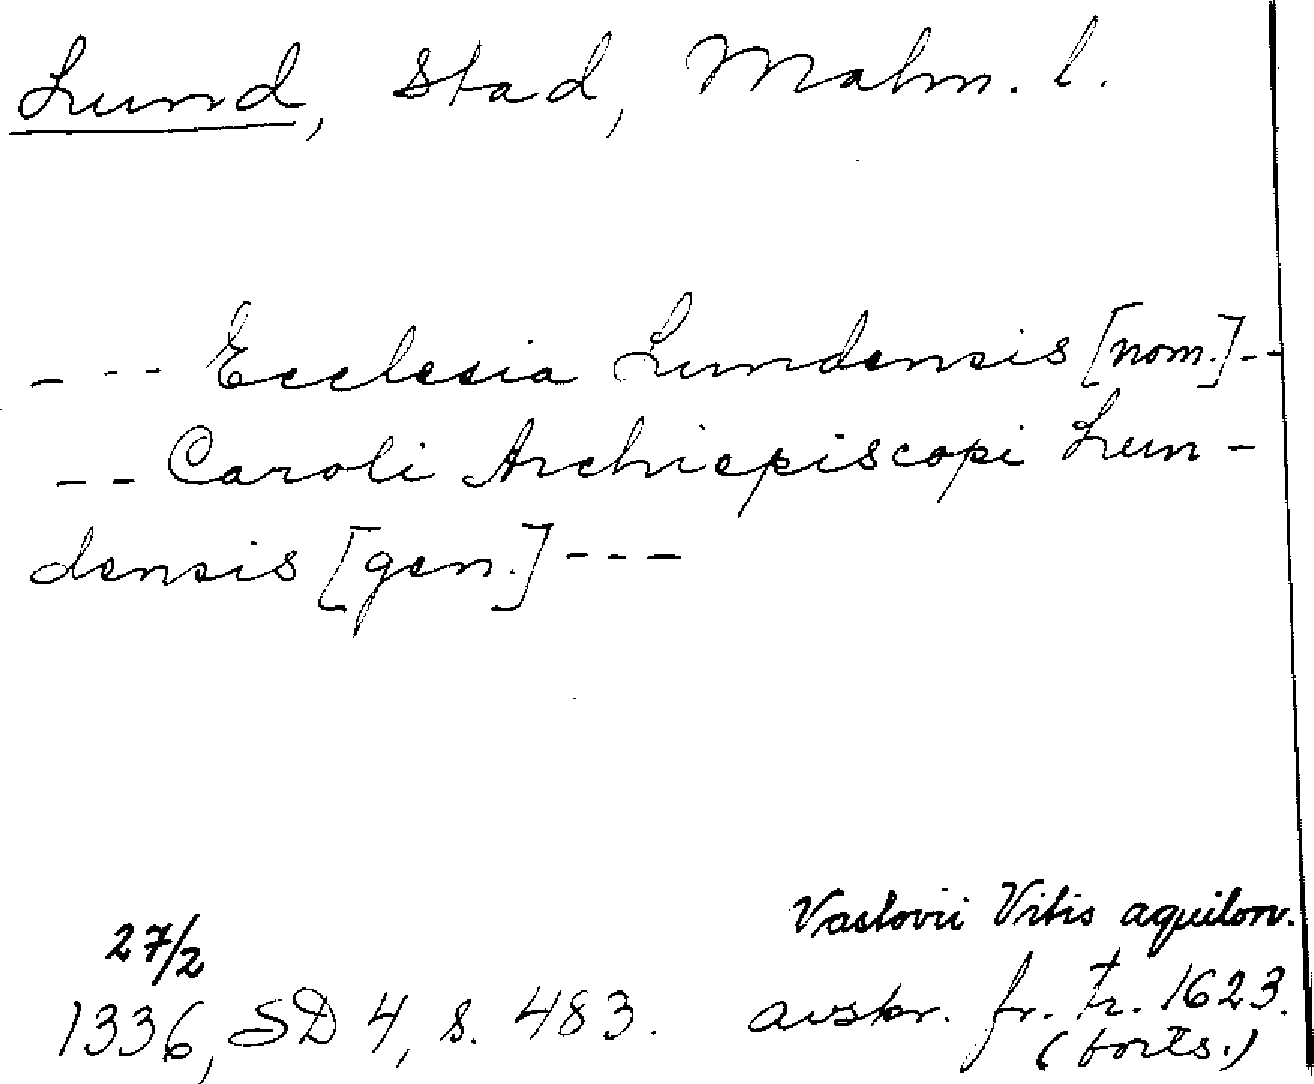 Lund, Stad, Malm. l.
- - - Ecclesia Lundensis [nom.] - -
- - Caroli Archiepiscopi Lun-
densis [gen.] - - -
27/2
1336, SD 4, s. 483.
Vastovii Vitis aquilon.
avskr. fr. tr. 1623.
(forts.)